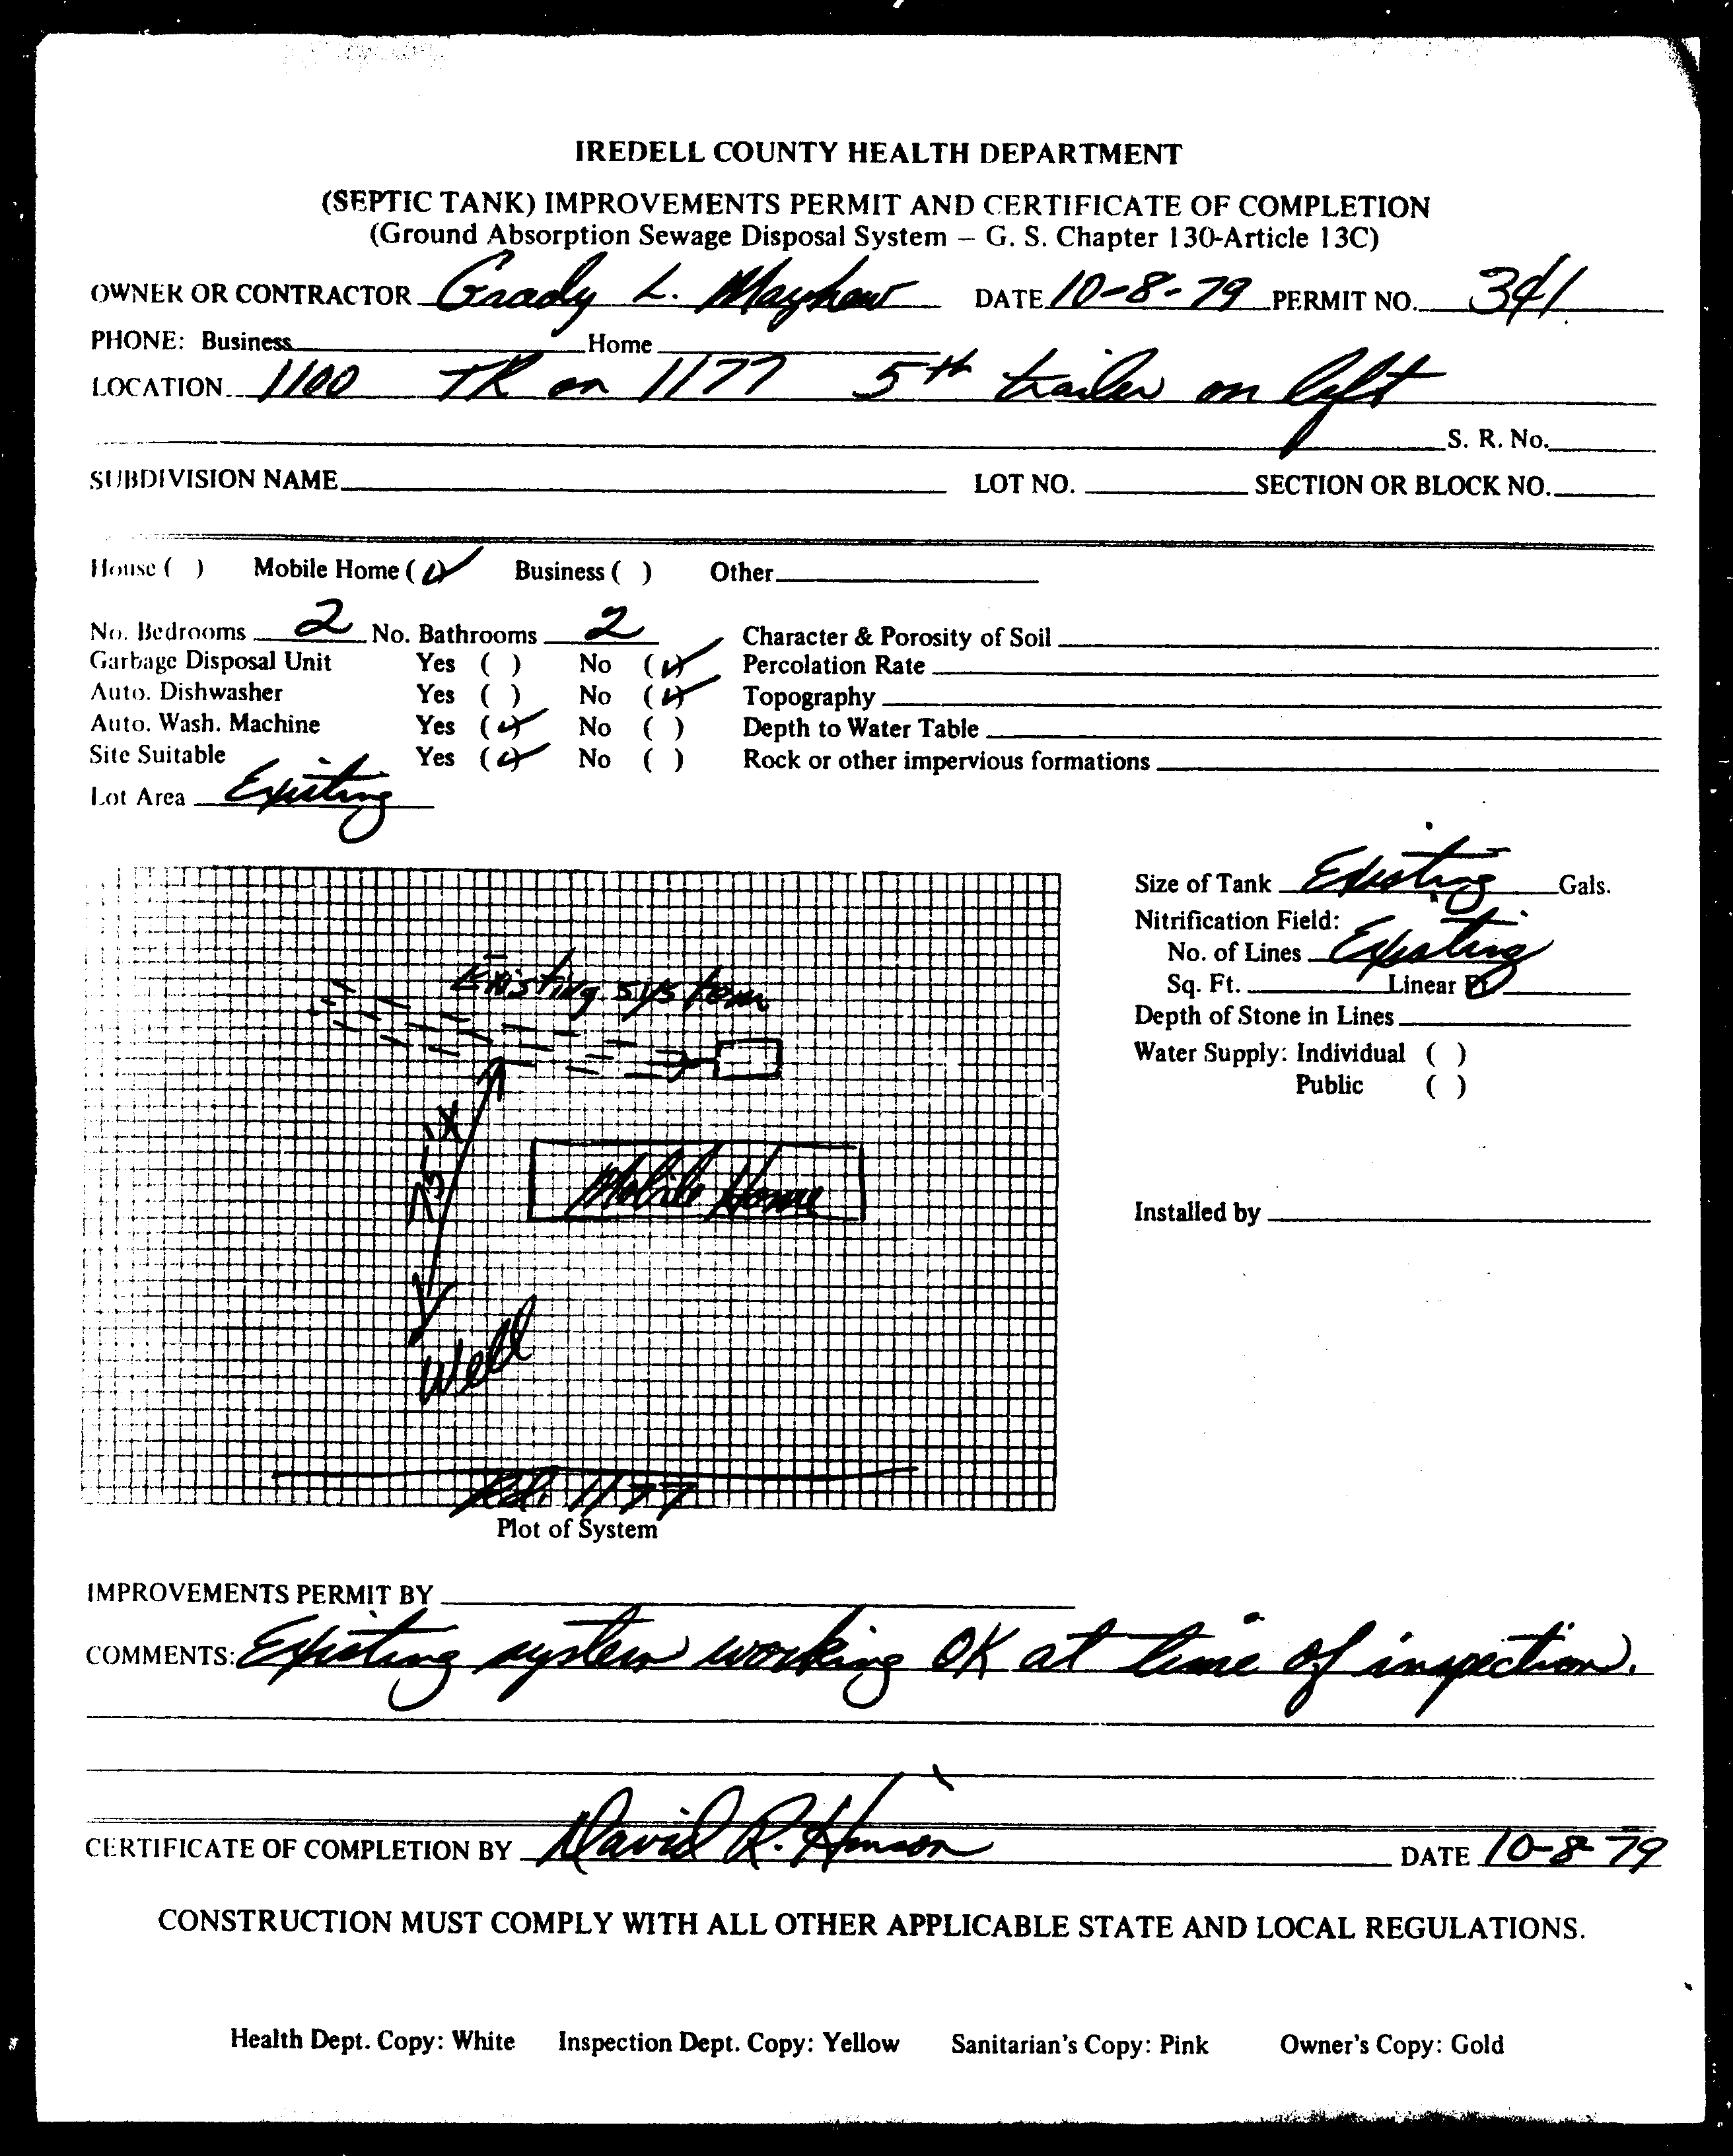 IREDELL COUNTY HEALTH DEPARTMENT
(SEPTIC TANK) IMPROVEMENTS PERMIT AND CERTIFICATE OF COMPLETION
(Ground Absorption Sewage Disposal System – G. S. Chapter 130-Article 13C)
OWNER OR CONTRACTOR Grady L. Mayhew DATE 10-8-79 PERMIT NO. 341
PHONE: Business Home
LOCATION 1100 TR on 1177 5th trailer on left
S. R. No.
SUBDIVISION NAME LOT NO. SECTION OR BLOCK NO.
House ( ) Mobile Home (✓) Business ( ) Other
No. Bedrooms 2 No. Bathrooms 2 Character & Porosity of Soil
Garbage Disposal Unit Yes ( ) No (✓) Percolation Rate
Auto. Dishwasher Yes ( ) No (✓) Topography
Auto. Wash. Machine Yes (✓) No ( ) Depth to Water Table
Site Suitable Yes (✓) No ( ) Rock or other impervious formations
Lot Area Existing
Size of Tank Existing Gals.
Nitrification Field:
No. of Lines Existing
Sq. Ft. Linear Ft.
Depth of Stone in Lines
Water Supply: Individual ( )
Public ( )
Installed by
Existing system
75'
Mobile Home
Well
Rd. 1177
Plot of System
IMPROVEMENTS PERMIT BY
COMMENTS: Existing system working OK at time of inspection.
CERTIFICATE OF COMPLETION BY David R. Henson DATE 10-8-79
CONSTRUCTION MUST COMPLY WITH ALL OTHER APPLICABLE STATE AND LOCAL REGULATIONS.
Health Dept. Copy: White Inspection Dept. Copy: Yellow Sanitarian's Copy: Pink Owner's Copy: Gold